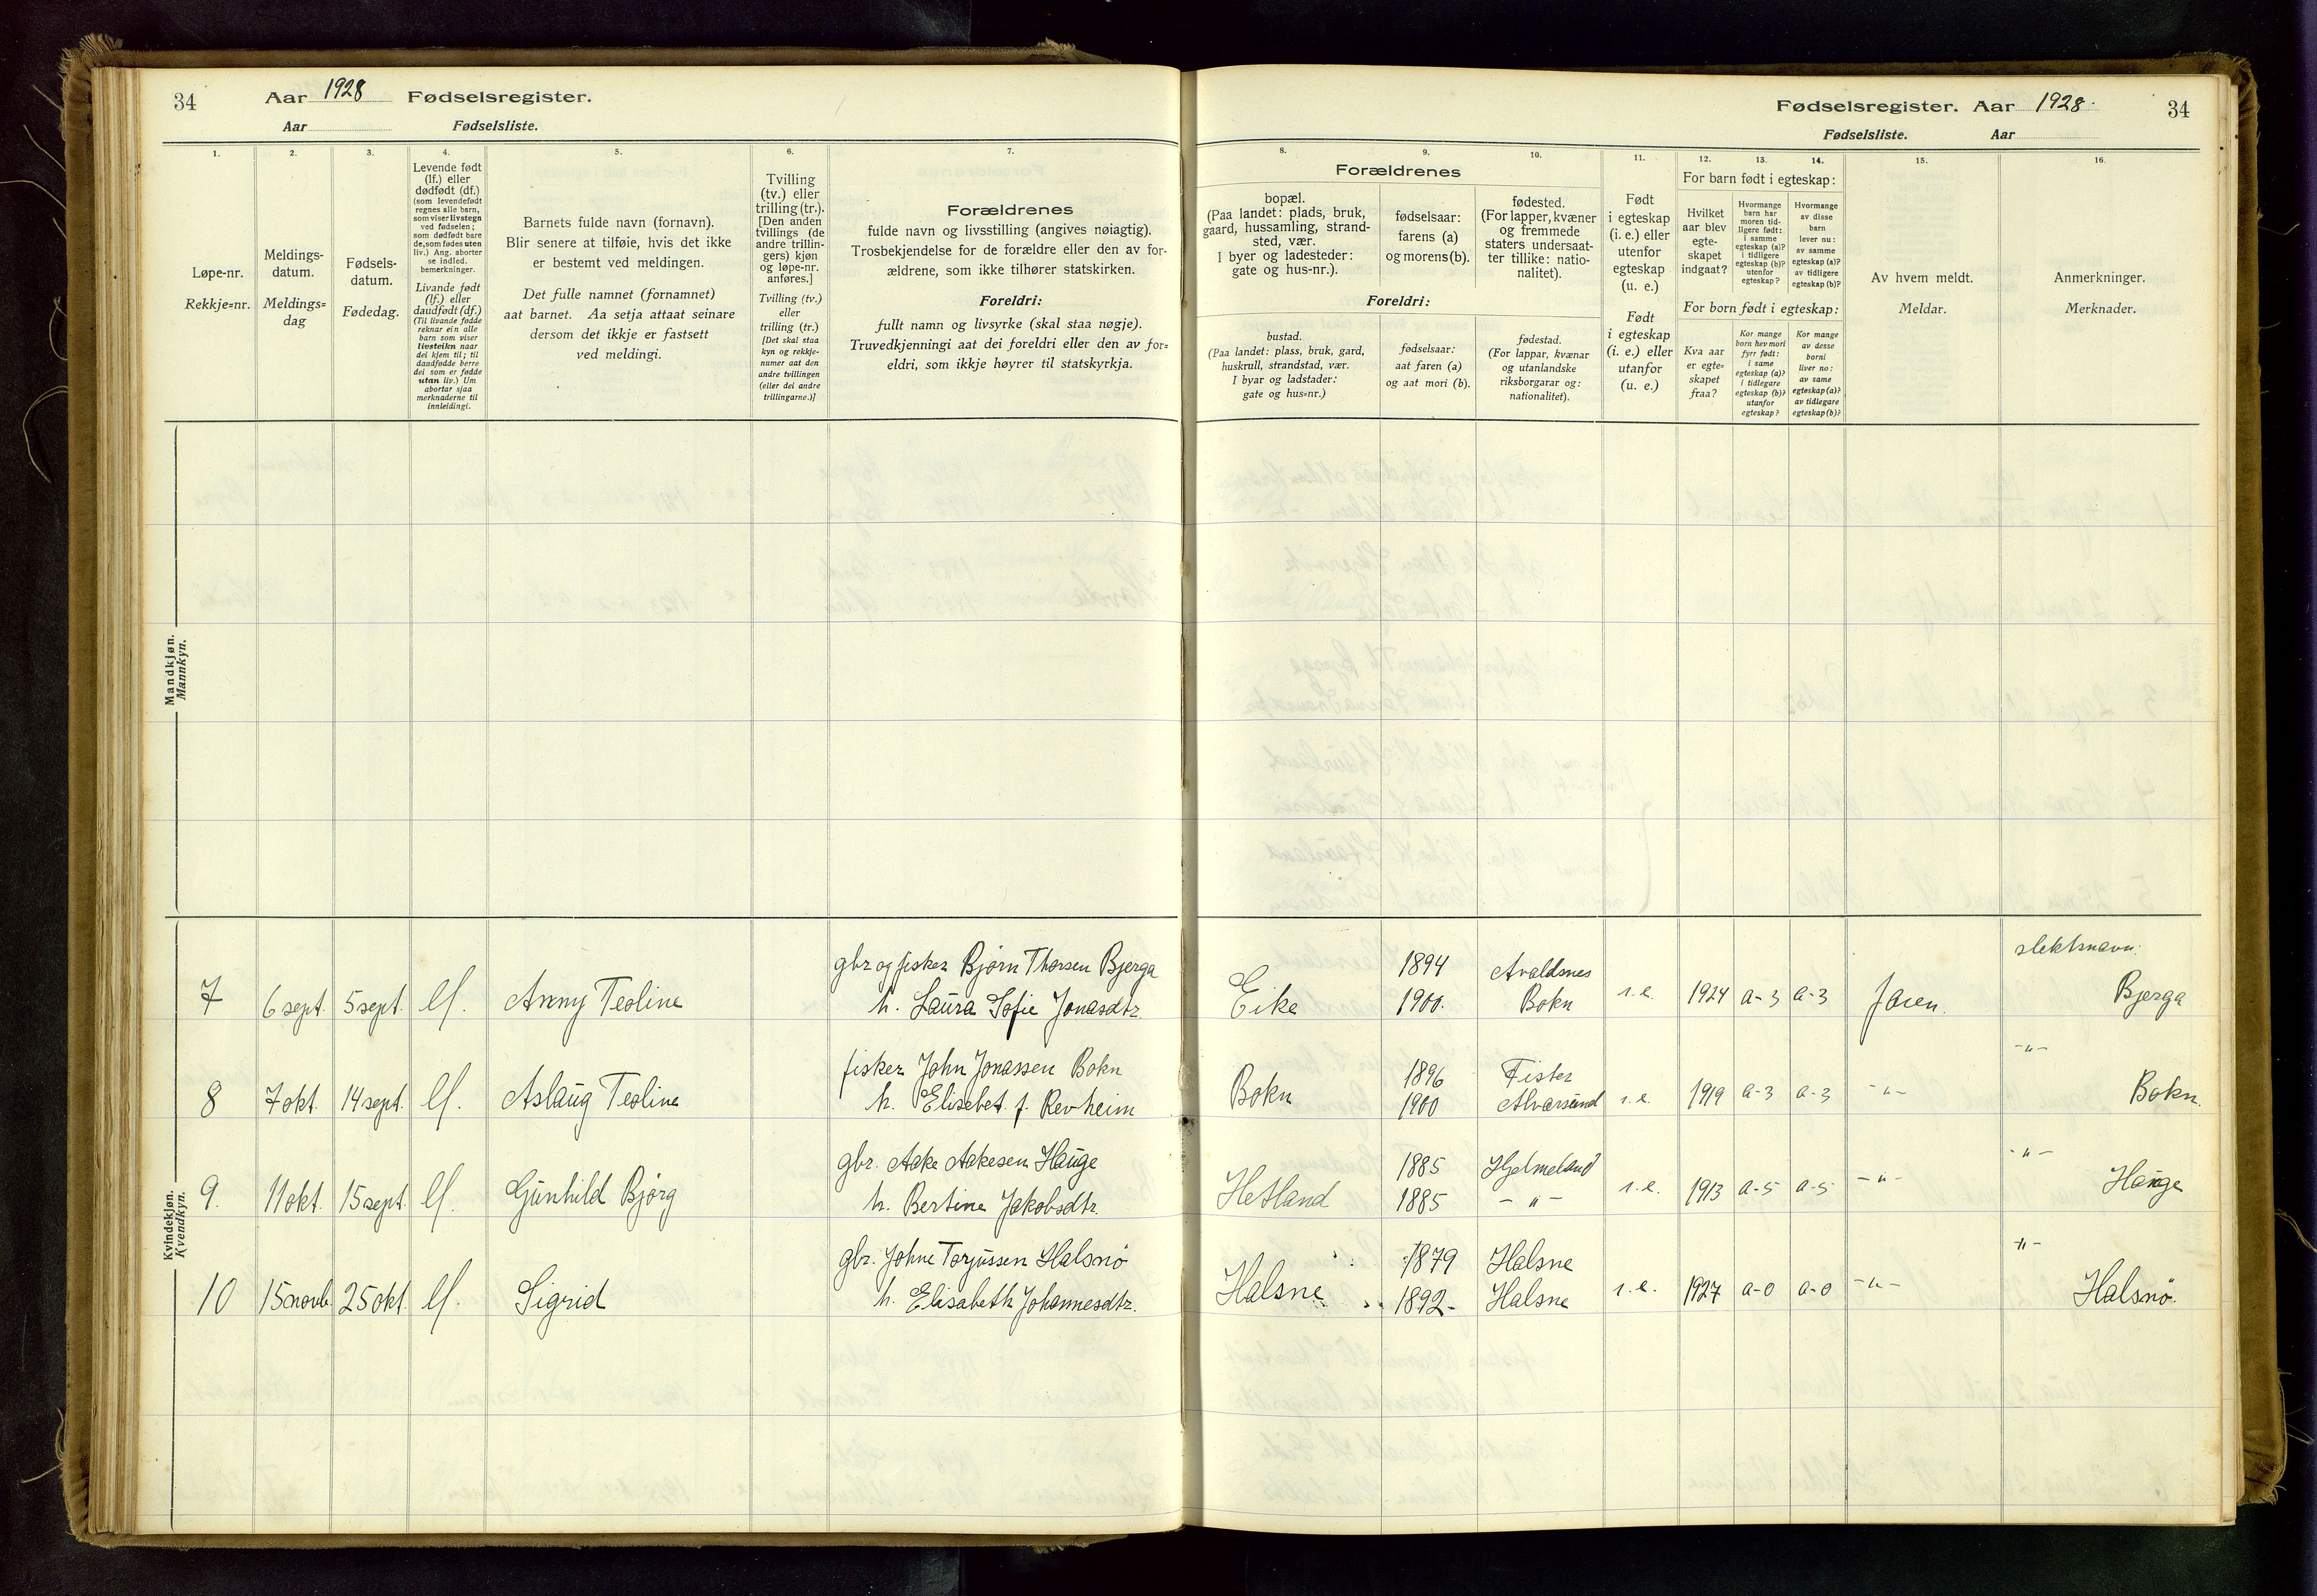 34 Aar 1928 Fødselsregister.
Aar Fødselsliste.
1.
Løpe-nr.
Rekkje=nr.
2.
Meldings-
datum.
Meldings=
dag
3.
Fødsels-
datum.
Fødedag.
4.
Levende født
(lf.) eller
dødfødt (df.)
(som levendefødt
regnes alle barn,
som viser livstegn
ved fødselen;
som dødfødt bare
de, som fødes uten
liv.) Ang. aborter
se indled.
bemerkninger.
Livande født
(lf.) eller
daudfødt (df.)
(Til livande fødde
reknar ein alle
barn som viser
livsteikn naar
dei kjem til; til
daudfødde berre
dei som er fødde
utan liv.) Um
abortar sjaa
merknaderne til
innleidingi.
5.
Barnets fulde navn (fornavn).
Blir senere at tilføie, hvis det ikke
er bestemt ved meldingen.
Det fulle namnet (fornamnet)
aat barnet. Aa setja attaat seinare
dersom det ikkje er fastsett
ved meldingi.
6.
Tvilling
(tv.) eller
trilling (tr.).
[Den anden
tvillings (de
andre trillin-
gers) kjøn
og løpe-nr.
anføres.]
Tvilling (tv.)
eller
trilling (tr.)
[Det skal staa
kyn og rekkje-
numer aat den
andre tvillingen
(eller dei andre
trillingarne.)]
7.
Forældrenes
fulde navn og livsstilling (angives nøiagtig).
Trosbekjendelse for de forældre eller den av for-
ældrene, som ikke tilhører statskirken.
Foreldri:
fullt namn og livsyrke (skal staa nøgje).
Truvedkjenningi aat dei foreldri eller den av for=
eldri, som ikkje høyrer til statskyrkja.
Mandkjøn.
Mannkyn.
Kvindekjøn.
Kvendkyn.
7 6 sept. 5 sept. lf. Anny Teoline gbr og fisker Bjørn Thorsen Bjerga
h. Laura Sofie Jonasdtr.
8 7 okt. 14 sept. lf. Aslaug Teoline fisker John Jonassen Bokn
h. Elisebet f. Revheim
9. 11 okt. 15 sept. lf. Gunhild Bjørg gbr. Aake Aakesen Hauge
h. Bertine Jakobsdtr.
10 15 novb. 25 okt. lf. Sigrid gbr. Johne Torjussen Halsnø
h. Elisabeth Johannesdtr.
Fødselsregister. Aar 1928. 34
Fødselsliste. Aar
Forældrenes
8.
bopæl.
(Paa landet: plads, bruk,
gaard, hussamling, strand-
sted, vær.
I byer og ladesteder:
gate og hus-nr.).
9.
fødselsaar:
farens (a)
og morens (b).
10.
fødested.
(For lapper, kvæner
og fremmede
staters undersaat-
ter tillike: natio-
nalitet).
Foreldri:
bustad.
(Paa landet: plass, bruk, gard,
huskrull, strandstad, vær.
I byar og ladstader:
gate og hus=nr.)
fødselsaar:
aat faren (a)
og aat mori (b).
fødestad.
(For lappar, kvænar
og utanlandske
riksborgarar og:
nationalitet).
11.
Født
i egteskap
(i. e.) eller
utenfor
egteskap
(u. e.)
Født
i egteskap
(i. e.) eller
utanfor
(u. e.)
12. 13. 14.
For barn født i egteskap:
Hvilket
aar blev
egte-
skapet
indgaat?
Hvormange
barn har
moren tid-
ligere født:
i samme
egteskap (a)?
i tidligere
egteskap (b)?
utenfor
egteskap?
Hvormange
av disse
barn
lever nu:
av samme
egteskap (a)?
av tidligere
egteskap (b)?
For born født i egteskap:
Kva aar
er egte=
skapet
fraa?
Kor mange
born hev mori
fyrr født:
i same
egteskap (a)?
i tidlegare
egteskap (b)?
utanfor
egteskap?
Kor mange
av desse
borni
liver no:
av same
egteskap (a)?
av tidlegare
egteskap (b)?
15.
Av hvem meldt.
Meldar.
16.
Anmerkninger.
Merknader.
slektsnavn:
Eike 1894 Avaldsnes
1900. Bokn i. e. 1924 a-3 a-3 Faren. Bjerga
Bokn 1896 Fister -"-
1900 Alvarsund i. e. 1919 a-3 a-3 -"- Bokn.
Hetland 1885 Hjelmeland -"-
1885 -"- i. e. 1913 a-5 a-5 -"- Hauge
Halsne 1879 Halsne -"-
1892- Halsne i. e. 1927 a-0 a-0 -"- Halsnø.